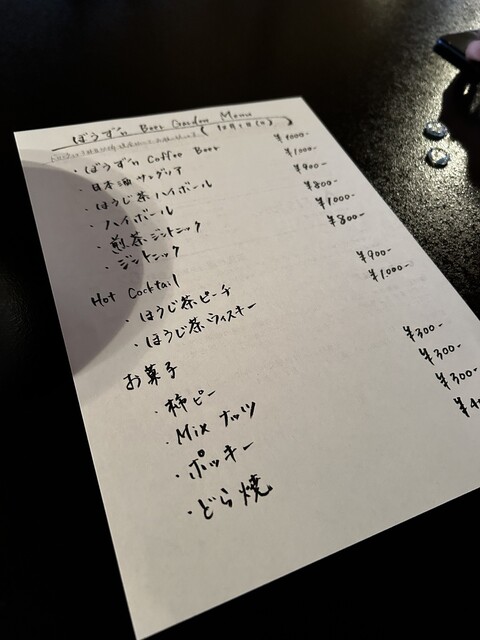 ぼうず'n Beer Garden Menu
・ぼうず'n Coffee Beer ¥1000-
・日本酒サングリア ¥1000-
・ほうじ茶ハイボール ¥900-
・ハイボール ¥800-
・煎茶ジントニック ¥1000-
・ジントニック ¥800-
Hot Cocktail
・ほうじ茶ピーチ ¥900-
・ほうじ茶ウィスキー ¥1000-
お菓子
・柿ピー ¥300-
・Mix ナッツ ¥300-
・ポッキー ¥300-
・どら焼